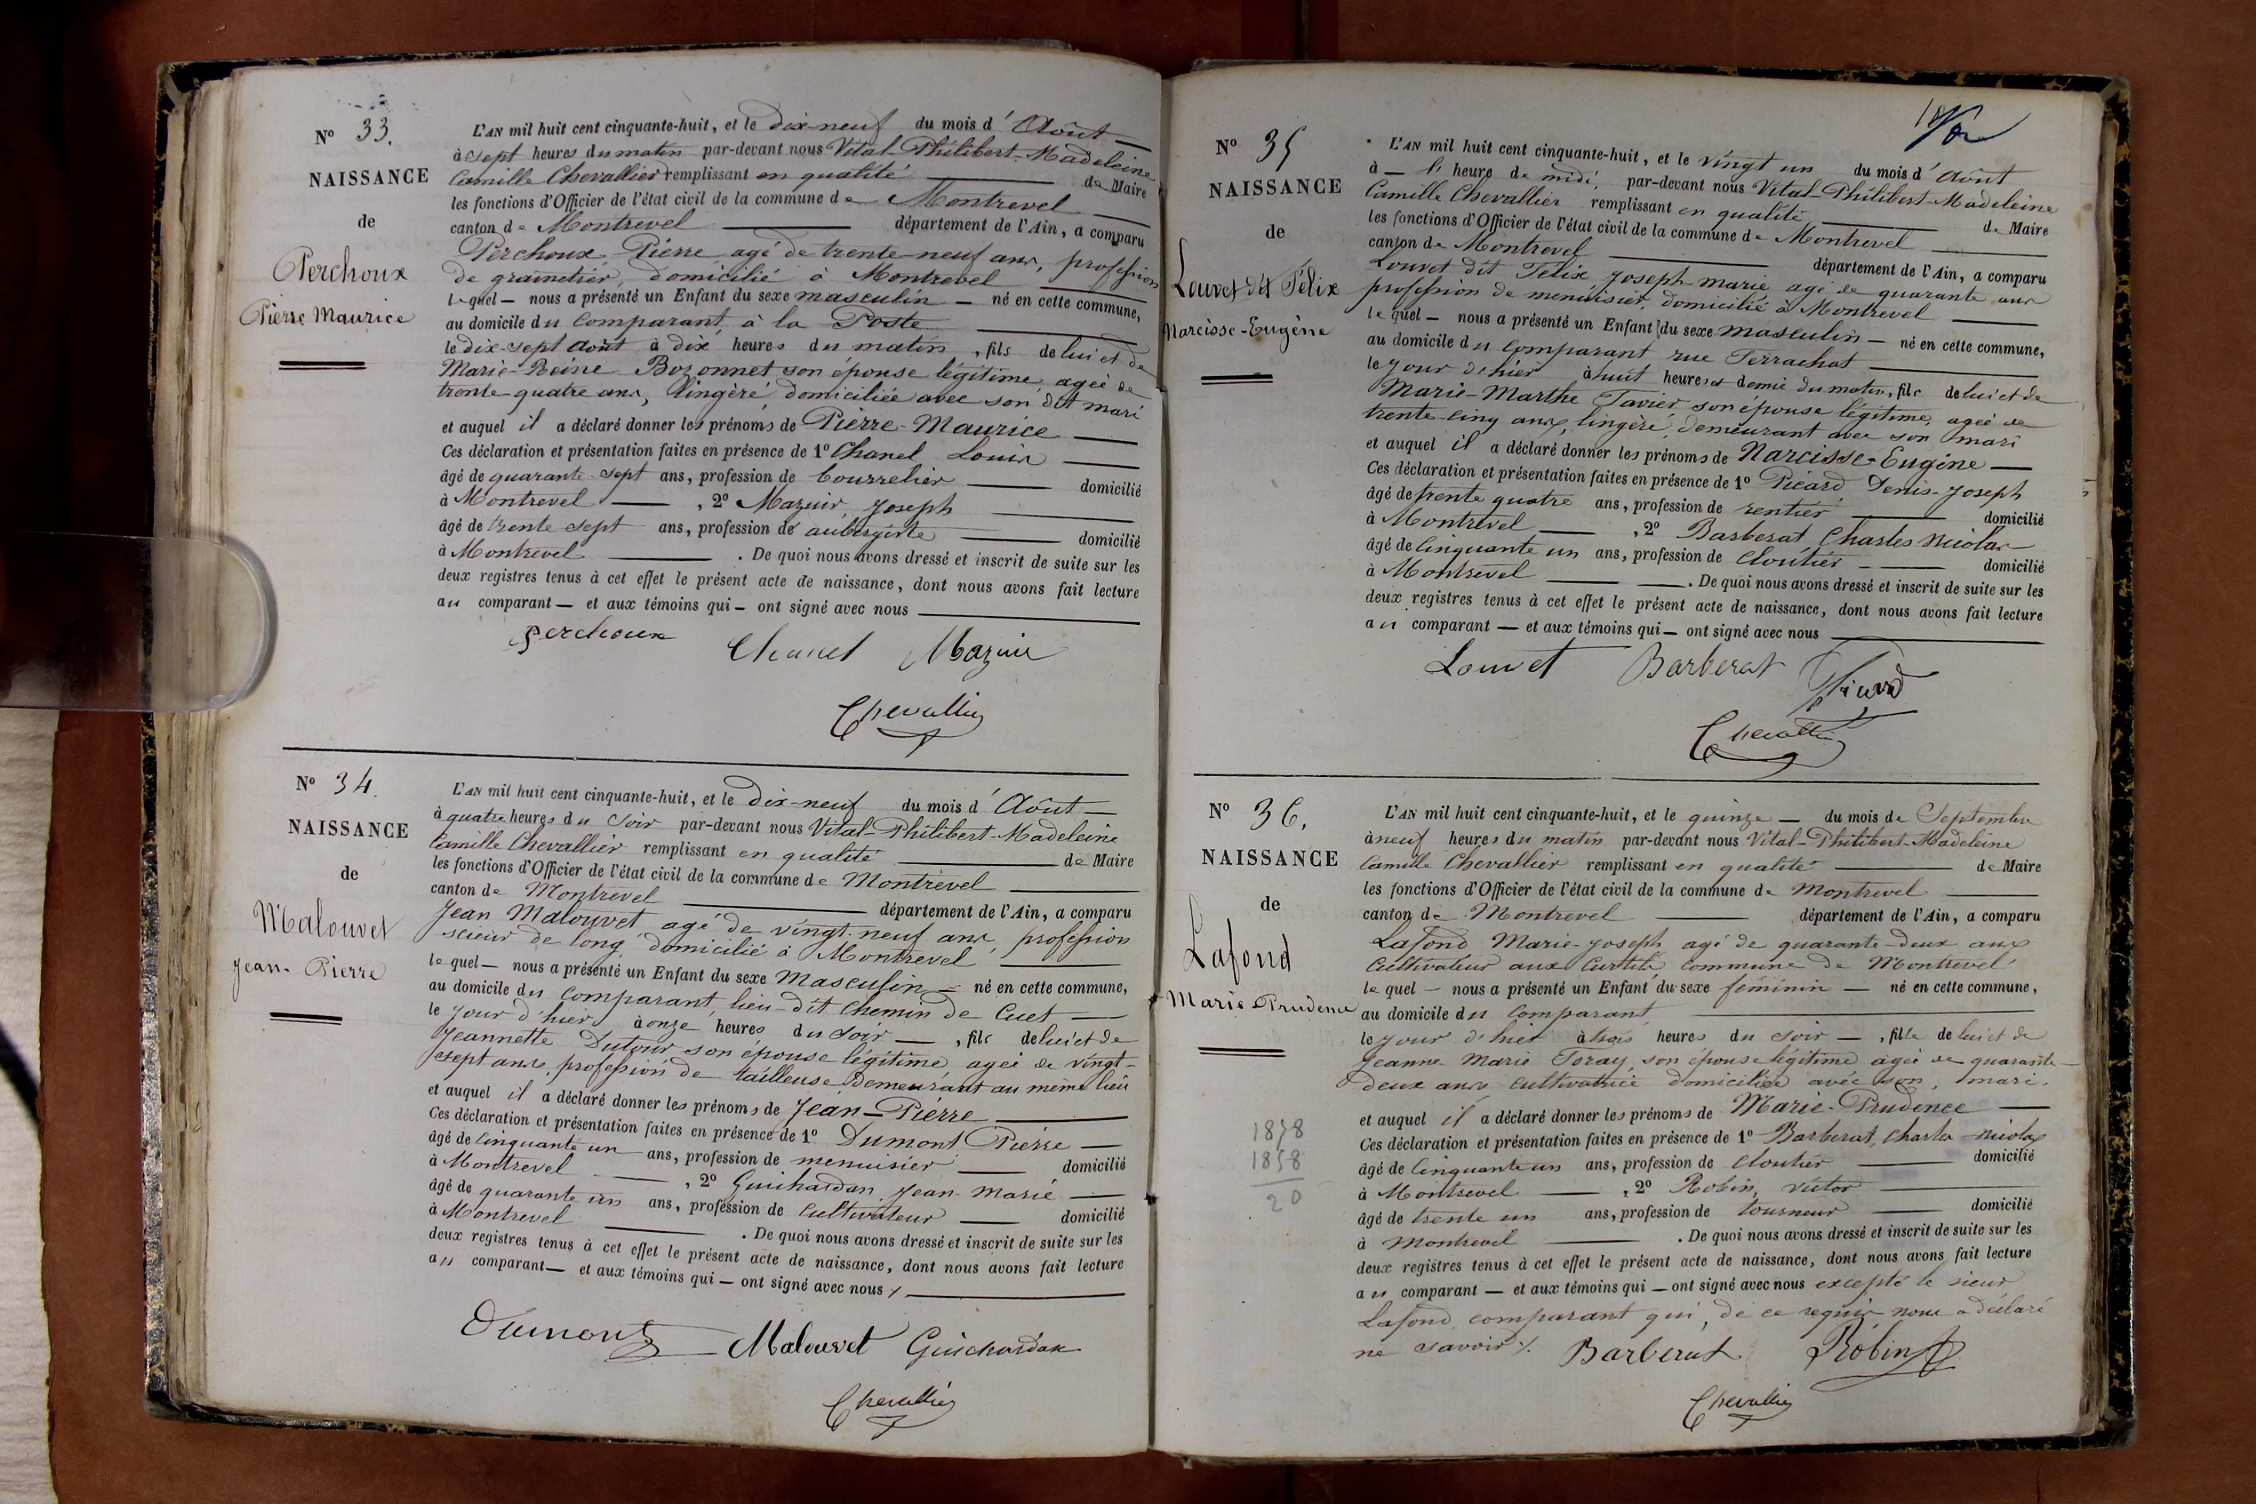 N° 33.
NAISSANCE
de
Perchoux
Pierre Maurice
L'AN mil huit cent cinquante-huit, et le dix-neuf du mois d'Août
à sept heures du matin par-devant nous Vital-Philibert-Madeleine
Camille Chevallier remplissant en qualité de Maire
les fonctions d'Officier de l'état civil de la commune de Montrevel
canton de Montrevel département de l'Ain, a comparu
Perchoux Pierre agé de trente-neuf ans, profession
de grainetier, domicilié à Montrevel
lequel — nous a présenté un Enfant du sexe masculin — né en cette commune,
au domicile du comparant, à la Poste
le dix-sept août à dix heures du matin, fils de lui et de
Marie-Reine Bozonnet son épouse légitime, agée de
trente-quatre ans, lingère, domiciliée avec son dit mari
et auquel il a déclaré donner les prénoms de Pierre-Maurice
Ces déclaration et présentation faites en présence de 1° Chanel Louis
âgé de quarante-sept ans, profession de bourrelier domicilié
à Montrevel, 2° Mazuir, Joseph
âgé de trente sept ans, profession de aubergiste domicilié
à Montrevel. De quoi nous avons dressé et inscrit de suite sur les
deux registres tenus à cet effet le présent acte de naissance, dont nous avons fait lecture
au comparant — et aux témoins qui — ont signé avec nous
Perchoux Chanel Mazuir
Chevallier
N° 34.
NAISSANCE
de
Malouvet
Jean-Pierre
L'AN mil huit cent cinquante-huit, et le dix-neuf du mois d'Août
à quatre heures du soir par-devant nous Vital-Philibert-Madeleine
Camille Chevallier remplissant en qualité de Maire
les fonctions d'Officier de l'état civil de la commune de Montrevel
canton de Montrevel département de l'Ain, a comparu
Jean Malouvet agé de vingt-neuf ans, profession
scieur de long domicilié à Montrevel
lequel — nous a présenté un Enfant du sexe Masculin — né en cette commune,
au domicile du comparant, lieu-dit Chemin de Cuet
le jour d'hier à onze heures du soir, fils de lui et de
Jeannette Dutour son épouse légitime, agée de vingt-
sept ans, profession de tailleuse Demeurant au même lieu
et auquel il a déclaré donner les prénoms de Jean-Pierre
Ces déclaration et présentation faites en présence de 1° Dumont Pierre
âgé de cinquante un ans, profession de menuisier domicilié
à Montrevel, 2° Guichardan, Jean-Marie
âgé de quarante un ans, profession de cultivateur domicilié
à Montrevel. De quoi nous avons dressé et inscrit de suite sur les
deux registres tenus à cet effet le présent acte de naissance, dont nous avons fait lecture
au comparant — et aux témoins qui — ont signé avec nous
Dumont Malouvet Guichardan
Chevallier
N° 35
NAISSANCE
de
Louvet dit Félix
Narcisse-Eugène
L'AN mil huit cent cinquante-huit, et le vingt un du mois d'Août
à — l' heure de midi, par-devant nous Vital-Philibert-Madeleine
Camille Chevallier remplissant en qualité de Maire
les fonctions d'Officier de l'état civil de la commune de Montrevel
canton de Montrevel département de l'Ain, a comparu
Louvet dit Félix Joseph-Marie agé de quarante ans
profession de menuisier, domicilié à Montrevel
lequel — nous a présenté un Enfant du sexe masculin — né en cette commune,
au domicile du comparant rue Ferrachat
le jour d'hier à huit heures et demie du matin, fils de lui et de
Marie-Marthe Tavier, son épouse légitime, agée de
trente-cinq ans, lingère, demeurant avec son mari
et auquel il a déclaré donner les prénoms de Narcisse-Eugène
Ces déclaration et présentation faites en présence de 1° Picard Denis-Joseph
âgé de trente quatre ans, profession de rentier domicilié
à Montrevel, 2° Barberat Charles Nicolas
âgé de cinquante un ans, profession de cloutier domicilié
à Montrevel. De quoi nous avons dressé et inscrit de suite sur les
deux registres tenus à cet effet le présent acte de naissance, dont nous avons fait lecture
au comparant — et aux témoins qui — ont signé avec nous
Louvet Barberat Picard
Chevallier
N° 36.
NAISSANCE
de
Lafond
Marie-Prudence
1878
1858
20
L'AN mil huit cent cinquante-huit, et le quinze — du mois de Septembre
à neuf heures du matin par-devant nous Vital-Philibert-Madeleine
Camille Chevallier remplissant en qualité de Maire
les fonctions d'Officier de l'état civil de la commune de Montrevel
canton de Montrevel département de l'Ain, a comparu
Lafond Marie-Joseph agé de quarante-deux ans
cultivateur aux Curtils, commune de Montrevel
lequel — nous a présenté un Enfant du sexe féminin — né en cette commune,
au domicile du comparant
le jour d'hier à trois heures du soir —, fille de lui et de
Jeanne Marie Toray, son épouse légitime agée de quarante-
deux ans cultivatrice domiciliée avec son mari.
et auquel il a déclaré donner les prénoms de Marie-Prudence
Ces déclaration et présentation faites en présence de 1° Barberat, Charles Nicolas
âgé de cinquante un ans, profession de cloutier domicilié
à Montrevel, 2° Robin, Victor
âgé de trente un ans, profession de tourneur domicilié
à Montrevel. De quoi nous avons dressé et inscrit de suite sur les
deux registres tenus à cet effet le présent acte de naissance, dont nous avons fait lecture
au comparant — et aux témoins qui — ont signé avec nous excepté le sieur
Lafond, comparant qui, de ce requis nous a déclaré
ne savoir
Barberat Robin
Chevallier